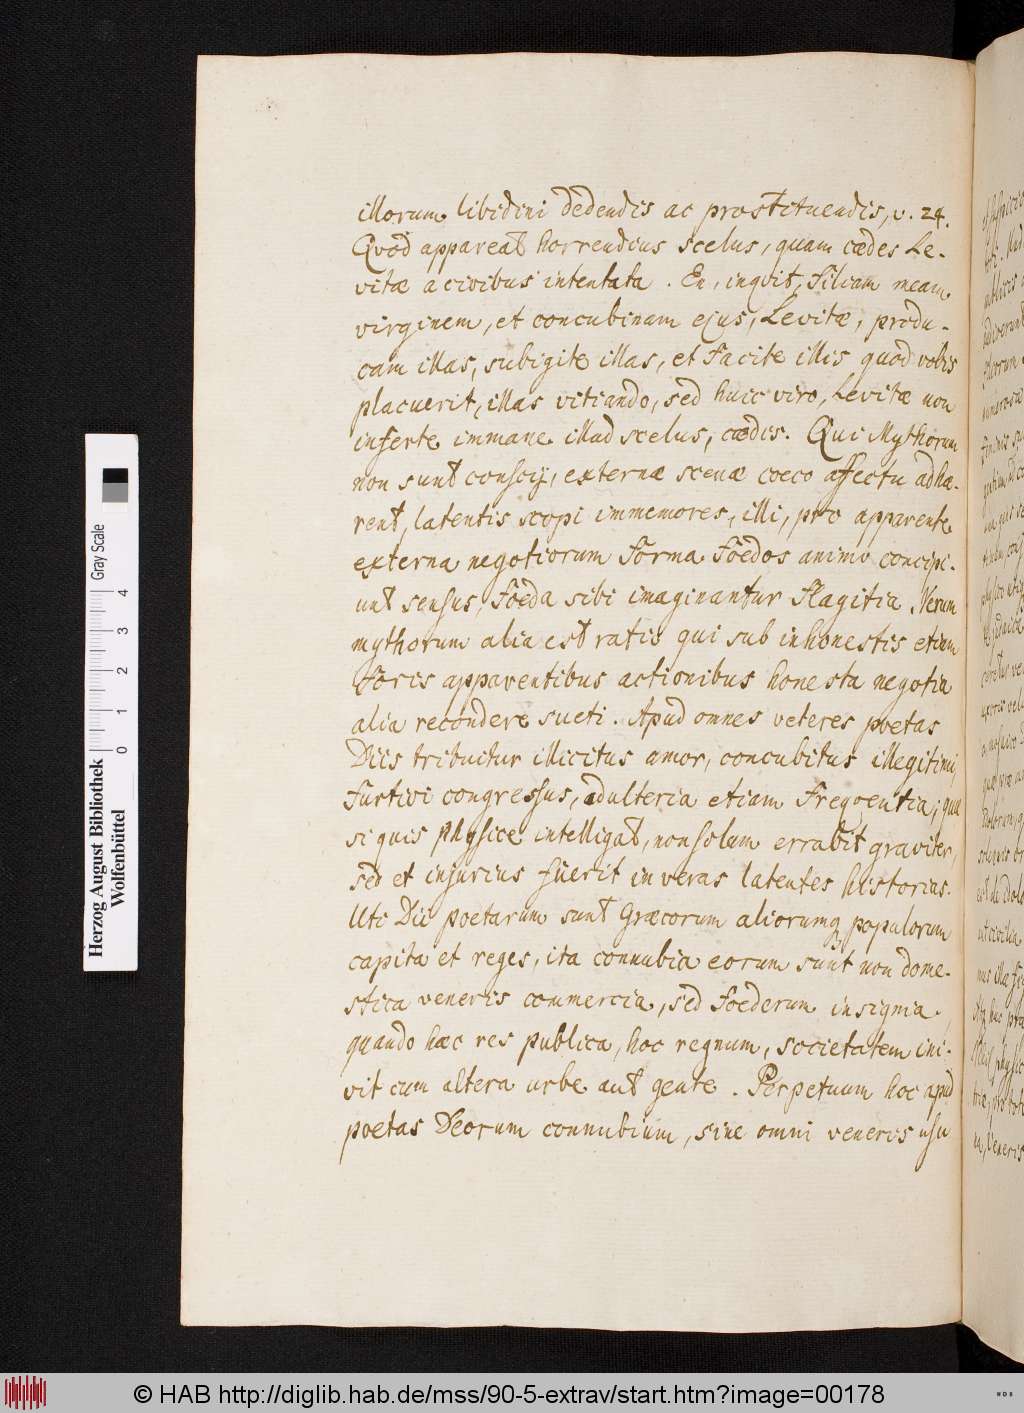 illorum libidini dedendis ac prostituendis, v. 24.
Quod appareat horrendius scelus, quam cædes Le-
vitæ a civibus intentata. En, inqvit, filiam meam
virginem, et concubinam ejus, Levitæ, produ-
cam illas, subigite illas, et facite illis quod vobis
placuerit, illas vitiando, sed huic viro, Levitæ non
inferte immane illud scelus, cædis. Qui Mythorum
non sunt conscij, externæ scenæ coeco affectu adhæ-
rent, latentis scopi immemores, illi, pro apparente
externa negotiorum forma foedos animo concipi-
unt sensus, foeda sibi imaginantur flagitia. Verum
mythorum alia est ratio qui sub inhonestis etiam
foris apparentibus actionibus honesta negotia
alia recondere sueti. Apud omnes veteres poetas
Diis tribuitur illicitus amor, concubitus illegitimi,
furtivi congressus, adulteria etiam freqventia; quæ
si quis physice intelligat, non solum errabit graviter,
sed et injurius fuerit in veras latentes historias.
Uti Dii poetarum sunt Græcorum aliorumq populorum
capita et reges, ita connubia eorum sunt non dome-
stica veneris commercia, sed foederum insignia.
quando hæc res publica, hoc regnum, societatem ini-
vit cum altera urbe aut gente. Perpetuum hoc apud
poetas Deorum connubium, sine omni veneris usu
Herzog August Bibliothek
Wolfenbüttel
0 1 2 3 4
Gray Scale
© HAB http://diglib.hab.de/mss/90-5-extrav/start.htm?image=00178